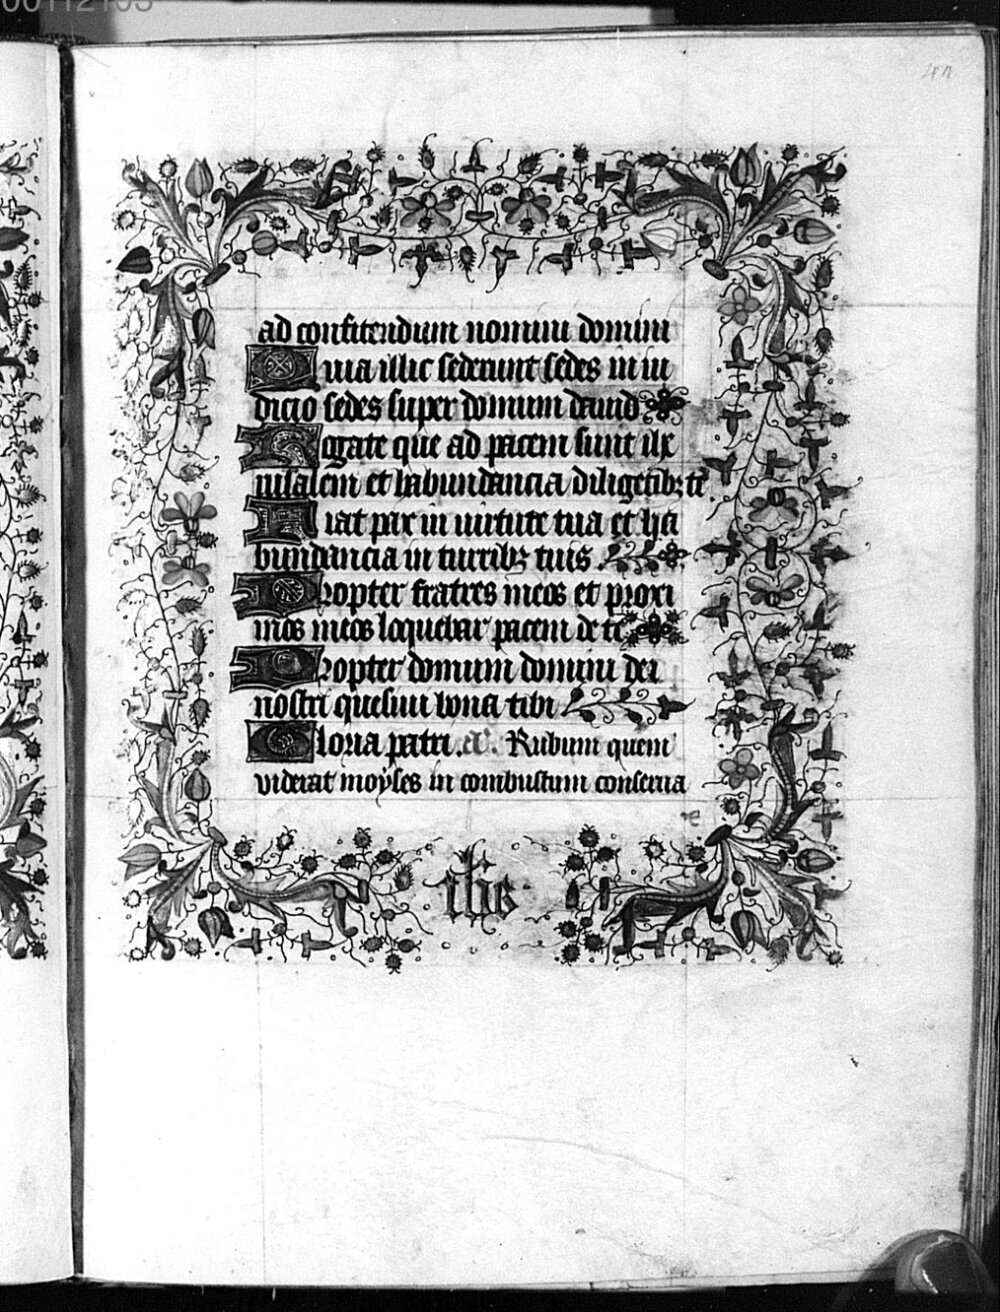 ad confitendum nomini domini
Quia illic sederunt sedes in iu
dicio sedes super domum dauid
Rogate que ad pacem sunt ihe
rusalem et habundancia diligētibꝫ te
Fiat pax in uirtute tua et ha
bundancia in turribꝫ tuis
Propter fratres meos et proxi
mos meos loquebar pacem de te
Propter domum domini dei
nostri quesiui bona tibi
Gloria patri. a͂. Rubum quem
viderat moyses in combustum conserua
ihc